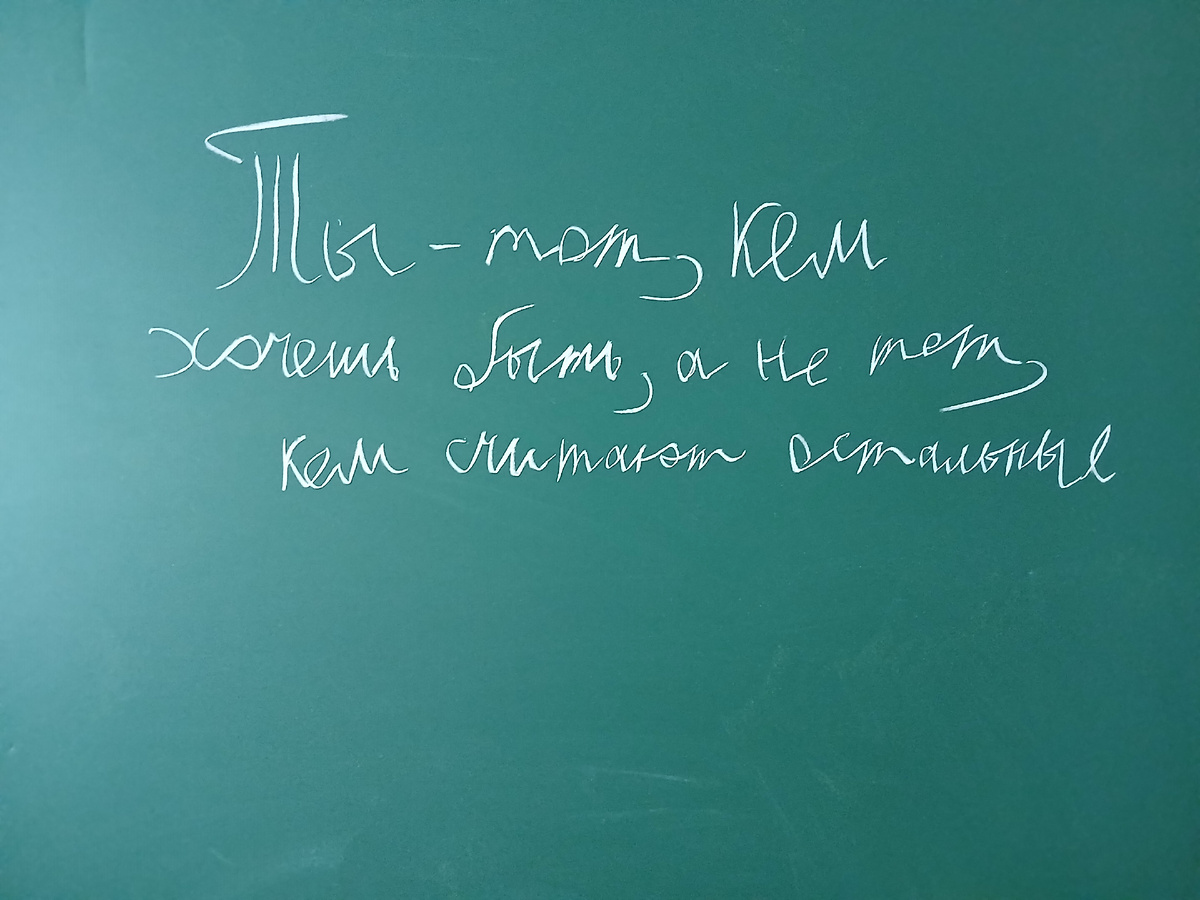 Ты - тот, кем
хочешь быть, а не тот,
кем считают остальные